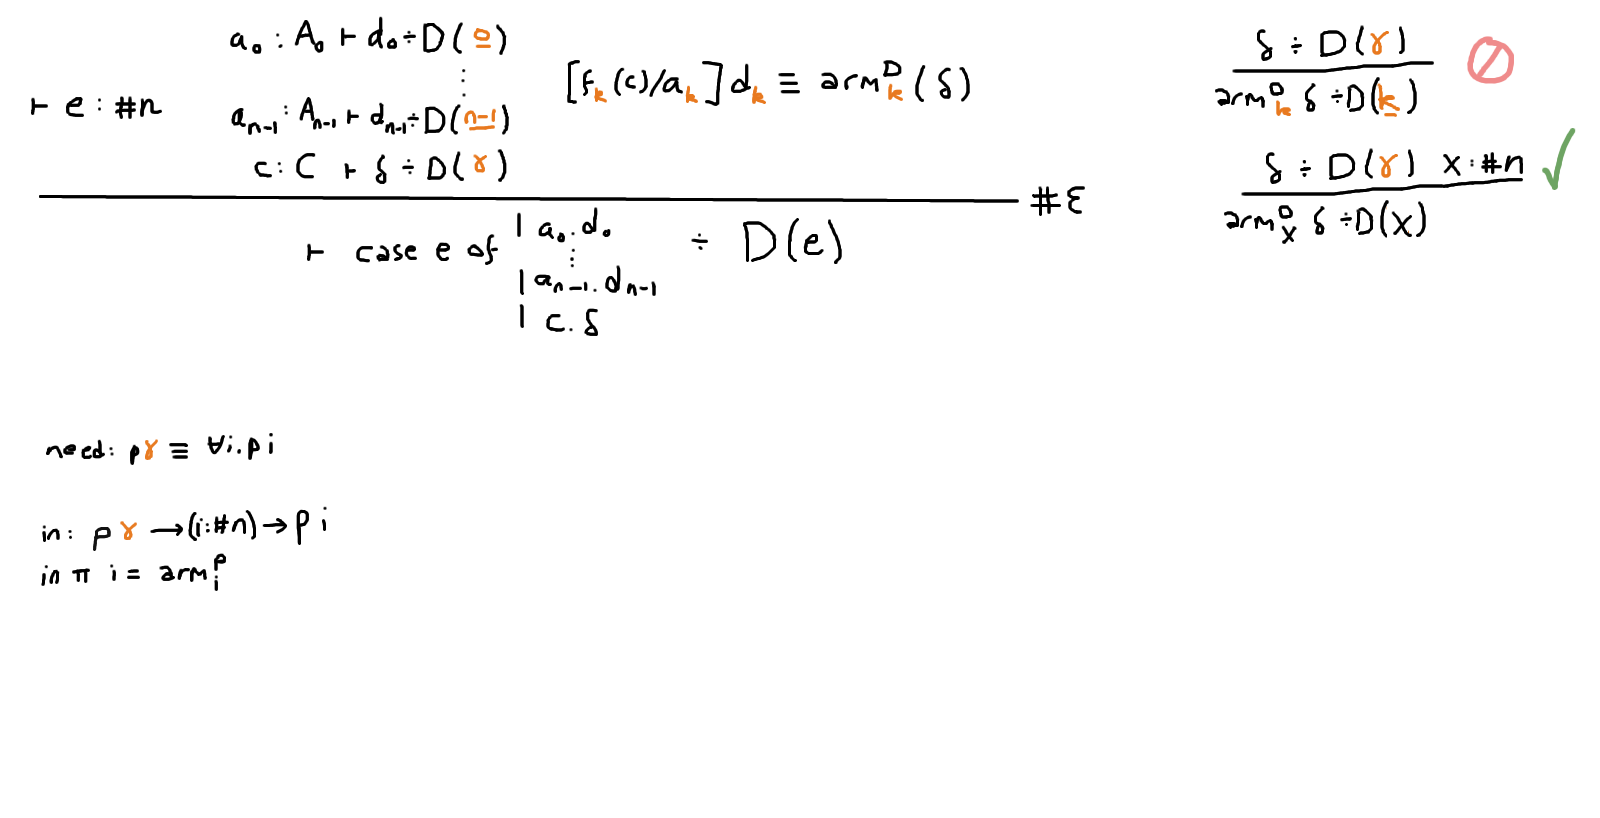 a₀ : A₀ ⊢ d₀ ÷ D(0)
⋮
⊢ e : #n
aₙ₋₁ : Aₙ₋₁ ⊢ dₙ₋₁ ÷ D(n-1)
c : C ⊢ δ ÷ D(γ)
[fₖ(c)/aₖ] dₖ ≡ armᴰₖ(δ)
#E
⊢ case e of
| a₀. d₀
⋮
| aₙ₋₁. dₙ₋₁
| c. δ
÷ D(e)
δ ÷ D(γ)
armᴰₖ δ ÷ D(k)
δ ÷ D(γ) x : #n
armᴰₓ δ ÷ D(x)
need: pγ ≡ ∀i. p i
in: p γ → (i:#n) → p i
in π i = armᵖᵢ